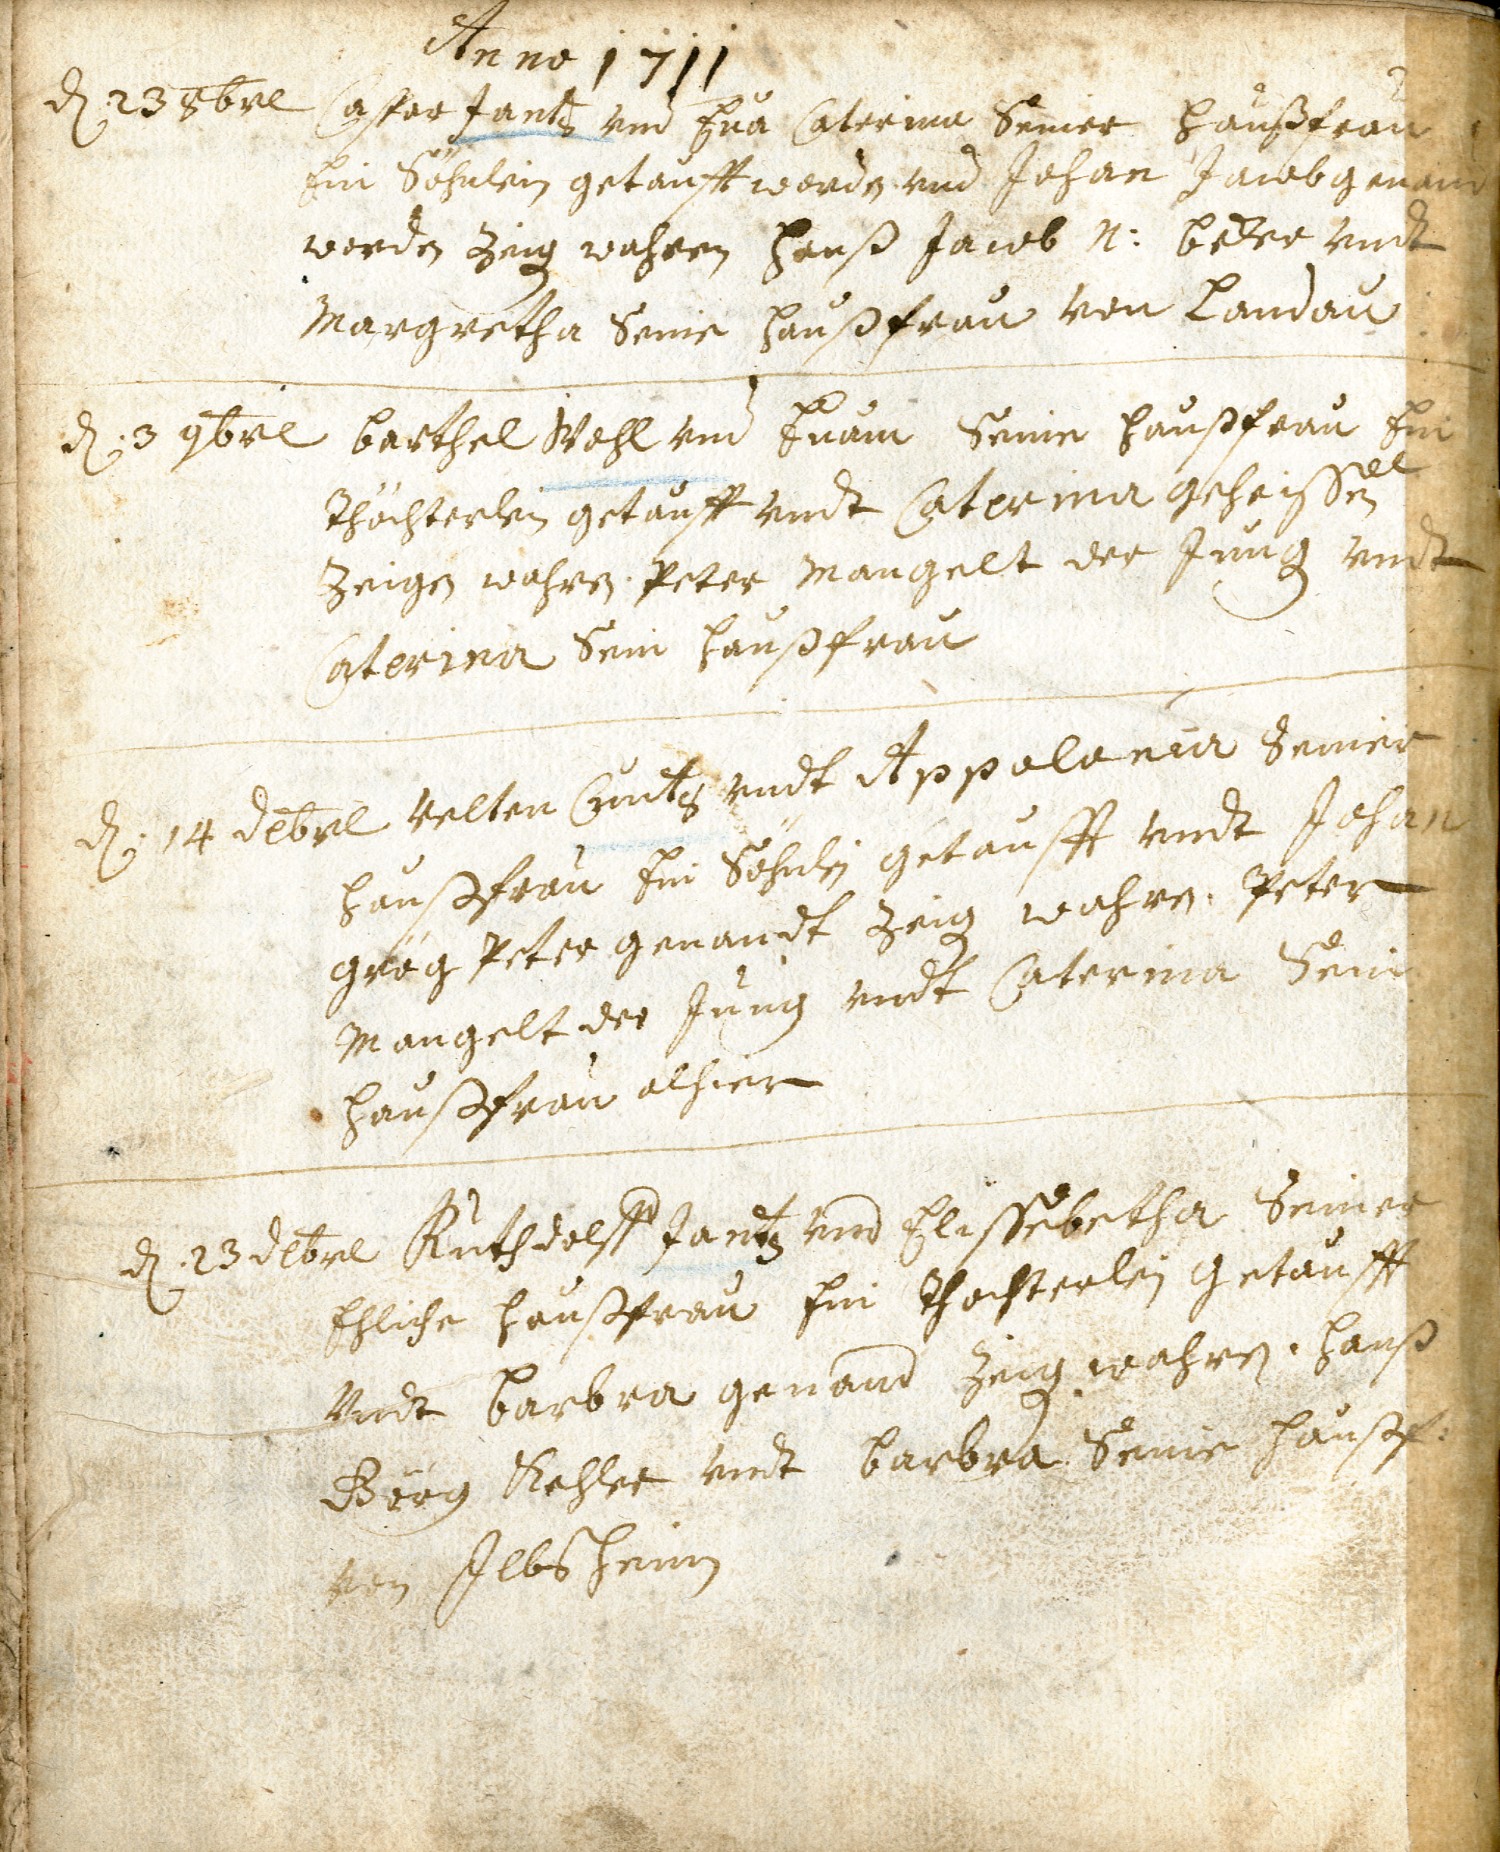 Anno 1711
d. 23 8bril Casper Jantz und Eua Caterina Seiner Haußfrau
Ein Söhnlein getaufft worden und Johan Jacob genand
worden Zeig wahren Hanß Jacob N: undt
Margretha Seine Haußfrau von Landau
d. 3 9bril Barthel Wehl und Euam Seine Haußfrau Ein
Thöchterlein getaufft undt Caterina geheissen
Zeigen wahren. Peter Mangelt der Jung undt
Caterina Sein Haußfrau
d. 14 debril Velten Cuntz undt Appolonia Seiner
Haußfrau Ein Söhnlein getaufft undt Johan
görg Peter genandt Zeig wahren. Peter
Mangelt der Jung undt Caterina Sein
Haußfrau alhier
d. 23 debril Ruthdolff Jantz und Elissebetha Seiner
Ehliche Haußfrau Ein Thochterlein getaufft
Undt Barbra genand Zeig wahren. Hanß
Görg Kehler undt Barbra Seine Haußf:
von Ilbsheim